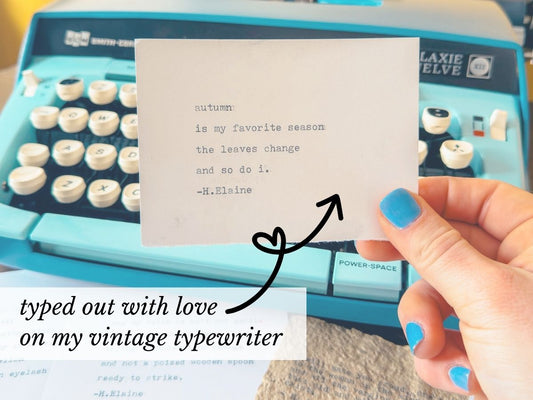 SMITH-CORONA
GALAXIE
TWELVE
XII
autumn
is my favorite season
the leaves change
and so do i.
-H.Elaine
Q
W
A
S
D
Z
X
POWER-SPACE
typed out with love
on my vintage typewriter
eyelash
and not a poized wooden spoon
ready to strike.
-H.Elaine